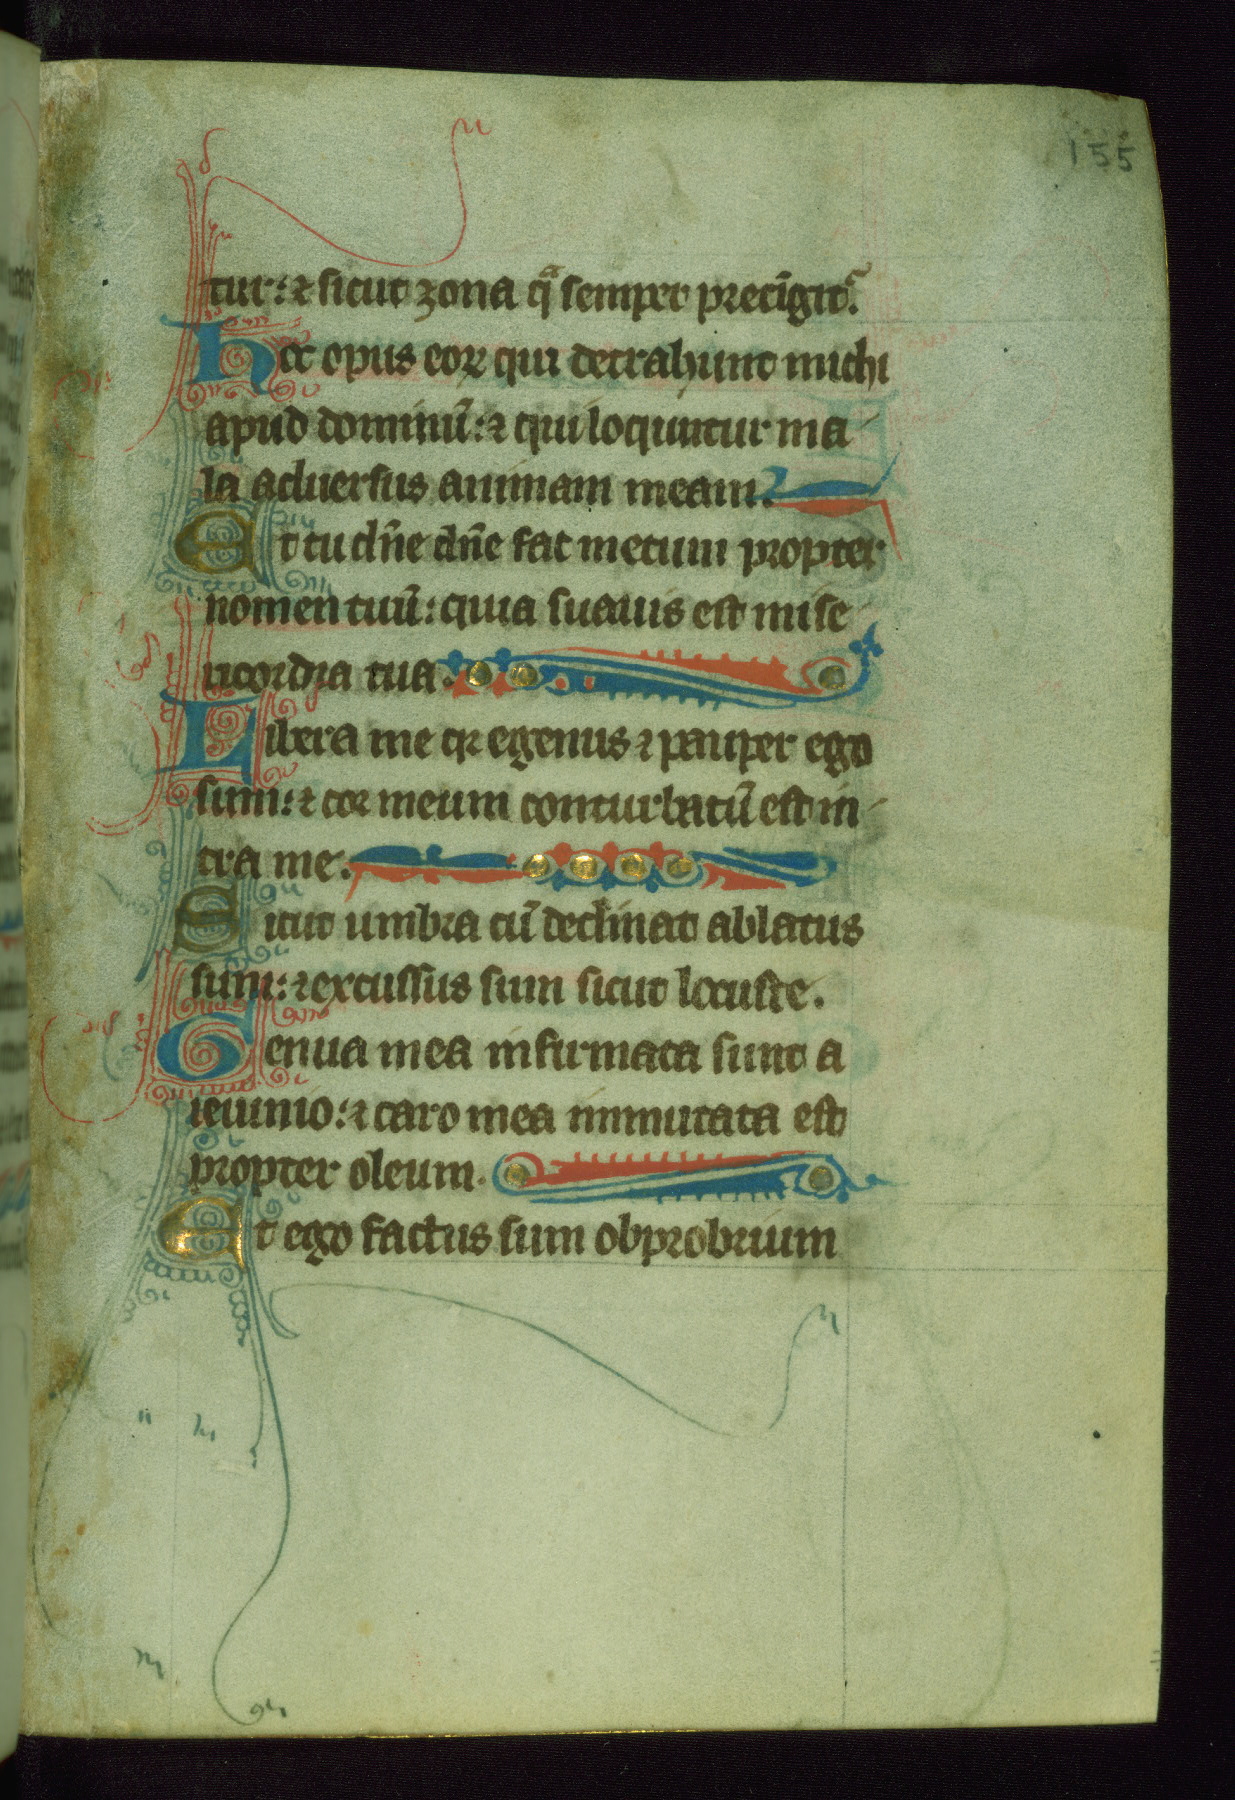 155
tur: ⁊ sicut zona qͣ semper precīgit᷑.
Hoc opus eoꝝ qui detrahunt michi
apud dominū: ⁊ qui loquuntur ma
la aduersus animam meam.
Et tu dn̄e dn̄e fac mecum propter
nomen tuū: quia suauis est mise
ricordia tua.
Libera me qꝛ egenus ⁊ pauper ego
sum: ⁊ cor meum conturbatū est in
tra me.
Sicut umbra cū declinat ablatus
sum: ⁊ excussus sum sicut locuste.
Genua mea infirmata sunt a
ieiunio: ⁊ caro mea inmutata est
propter oleum.
Et ego factus sum obprobrium